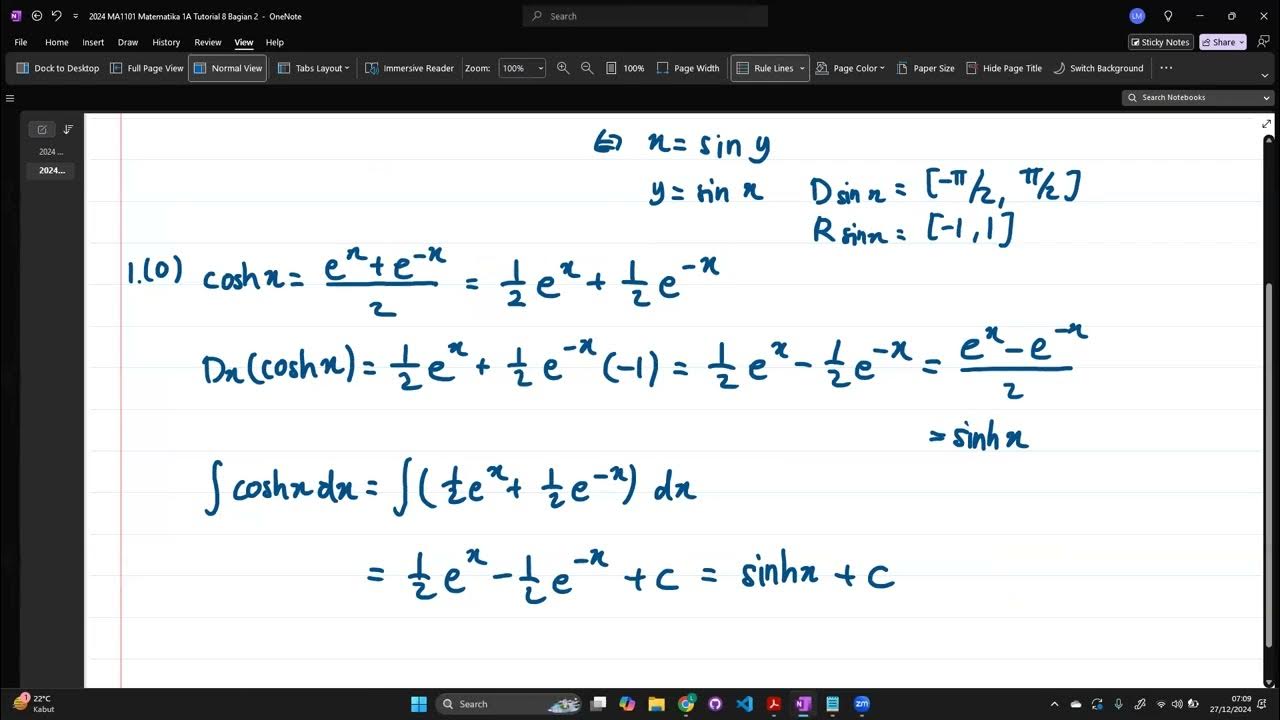 2024 MA1101 Matematika 1A Tutorial 8 Bagian 2 - OneNote
Search
LM
File Home Insert Draw History Review View Help
Sticky Notes Share
Dock to Desktop Full Page View Normal View Tabs Layout Immersive Reader Zoom: 100% 100% Page Width Rule Lines Page Color Paper Size Hide Page Title Switch Background ...
Search Notebooks
2024 ...
2024...
⇔ x = sin y
y = sin x D sin x = [-π/2, π/2]
R sin x = [-1, 1]
1.(0) cosh x = (e^x + e^-x)/2 = 1/2 e^x + 1/2 e^-x
Dx (cosh x) = 1/2 e^x + 1/2 e^-x (-1) = 1/2 e^x - 1/2 e^-x = (e^x - e^-x)/2
= sinh x
∫ cosh x dx = ∫ (1/2 e^x + 1/2 e^-x) dx
= 1/2 e^x - 1/2 e^-x + c = sinh x + c
1
22°C
Kabut
Search
zm
07:09
27/12/2024